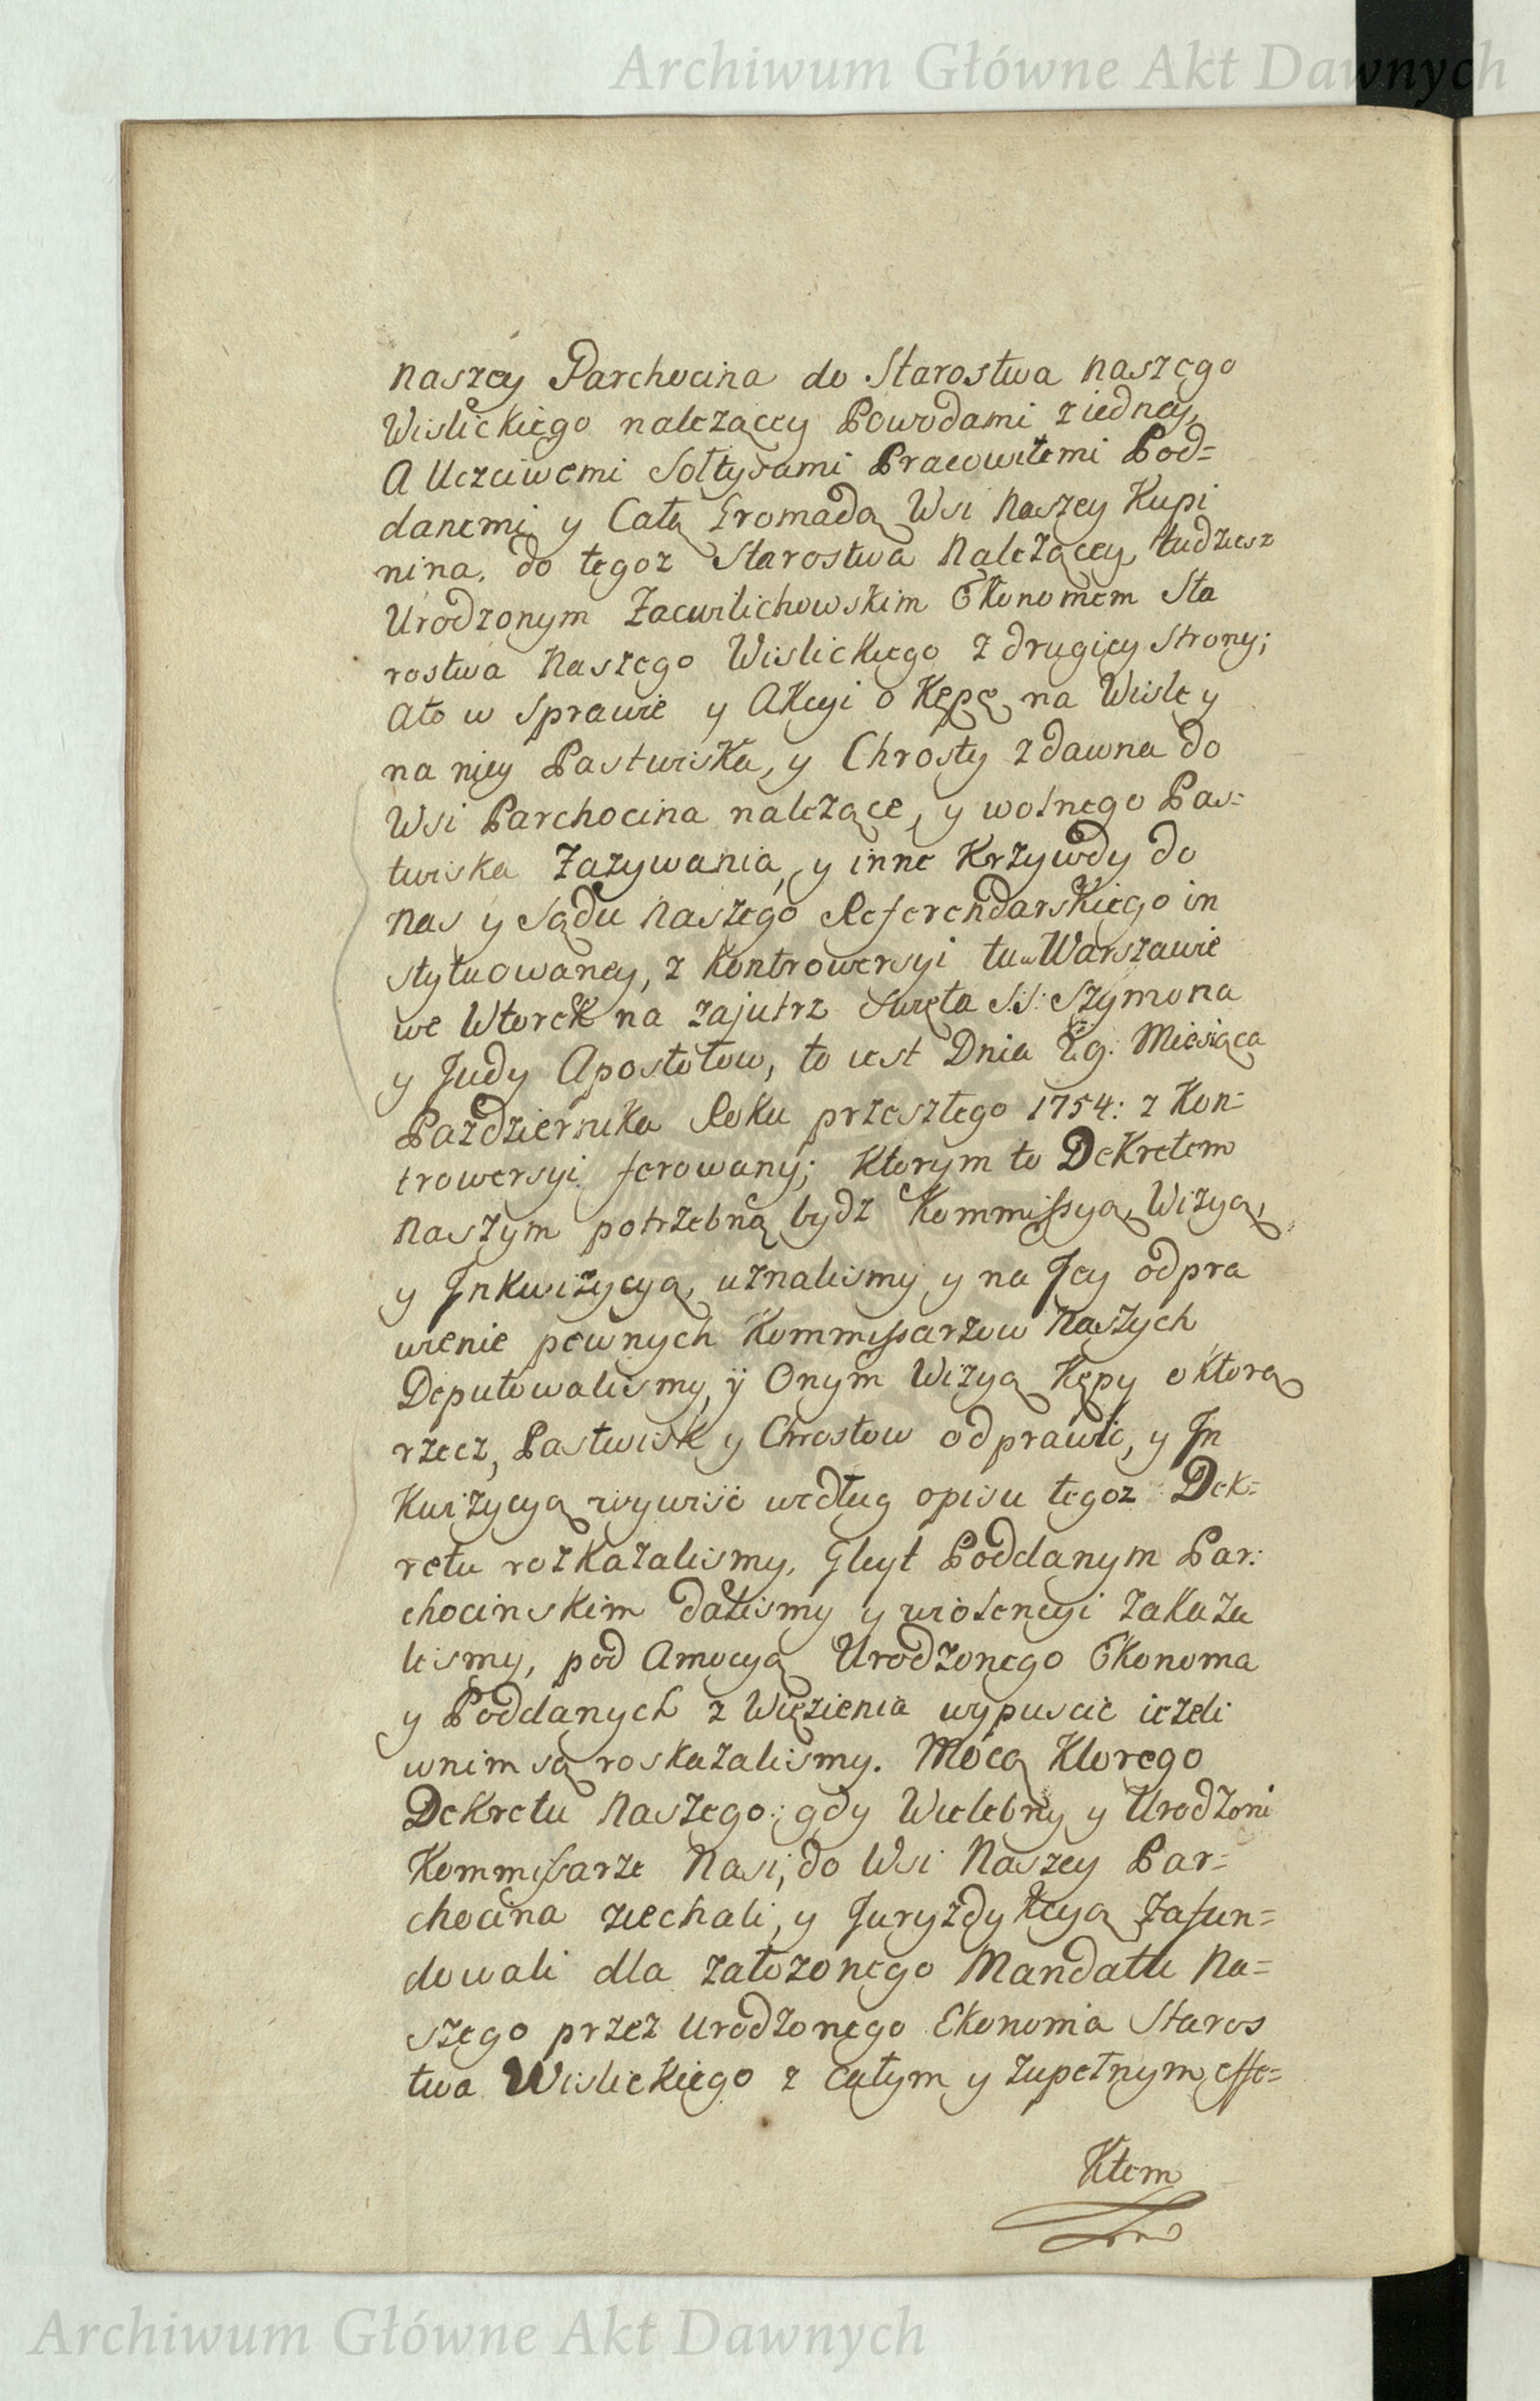 Archiwum Główne Akt Dawnych
naszey Parchocina do Starostwa naszego
Wislickiego należącey Powodami z iedney,
A Uczciwemi Sołtysami Pracowitemi Pod=
danemi y Całą Gromadą Wsi Naszey Kupi
nina, do tegoz Starostwa Należącey, tudziesz
Urodzonym Zacwilichowskim Ekonomem Sta
rostwa Naszego Wislickiego z drugiey strony;
Ato w sprawie y Akcyi o Kępę na Wisle y
na niey Pastwiska, y Chrosty zdawna do
Wsi Parchocina należące, y wolnego Pas=
twiska Zazywania, y inne Krzywdy do
Nas y Sądu Naszego Referendarskiego in
stytuowaney, z Kontrowersyi tu w Warszawie
we Wtorek na zajutrz Swięta S:S: Szymona
y Judy Apostołow, to iest Dnia 29: Miesiąca
Pazdziernika Roku przeszłego 1754: z Kon=
trowersyi ferowany; Ktorym to Dekretem
Naszym potrzebną bydz Kommissyą, Wizyą,
y Inkwizycyą, uznalismy y na Jey odpra
wienie pewnych Kommissarzow Naszych
Deputowalismy, y Onym Wizyą Kępy o ktorą
rzecz, Pastwisk y Chrostow odprawić, y In
kwizycyą wywiść według opisu tegoz Dek=
retu rozkazalismy, Gleyt Poddanym Par:
chocinskim dalismy y wiolencyi zakaza
lismy, pod Amocyą Urodzonego Ekonoma
y Poddanych z Więzienia wypuscić ieżeli
wnim są roskazalismy. Mocą Ktorego
Dekretu Naszego: gdy Wielebny y Urodzoni
Kommissarze Nasi, do Wsi Naszey Par=
chocina ziechali, y Juryzdykcyą Zafun=
dowali dla załozonego Mandatu Na=
szego przez Urodzonego Ekonoma Staros
twa Wislickiego z całym y zupełnym effe=
ktem
Archiwum Główne Akt Dawnych